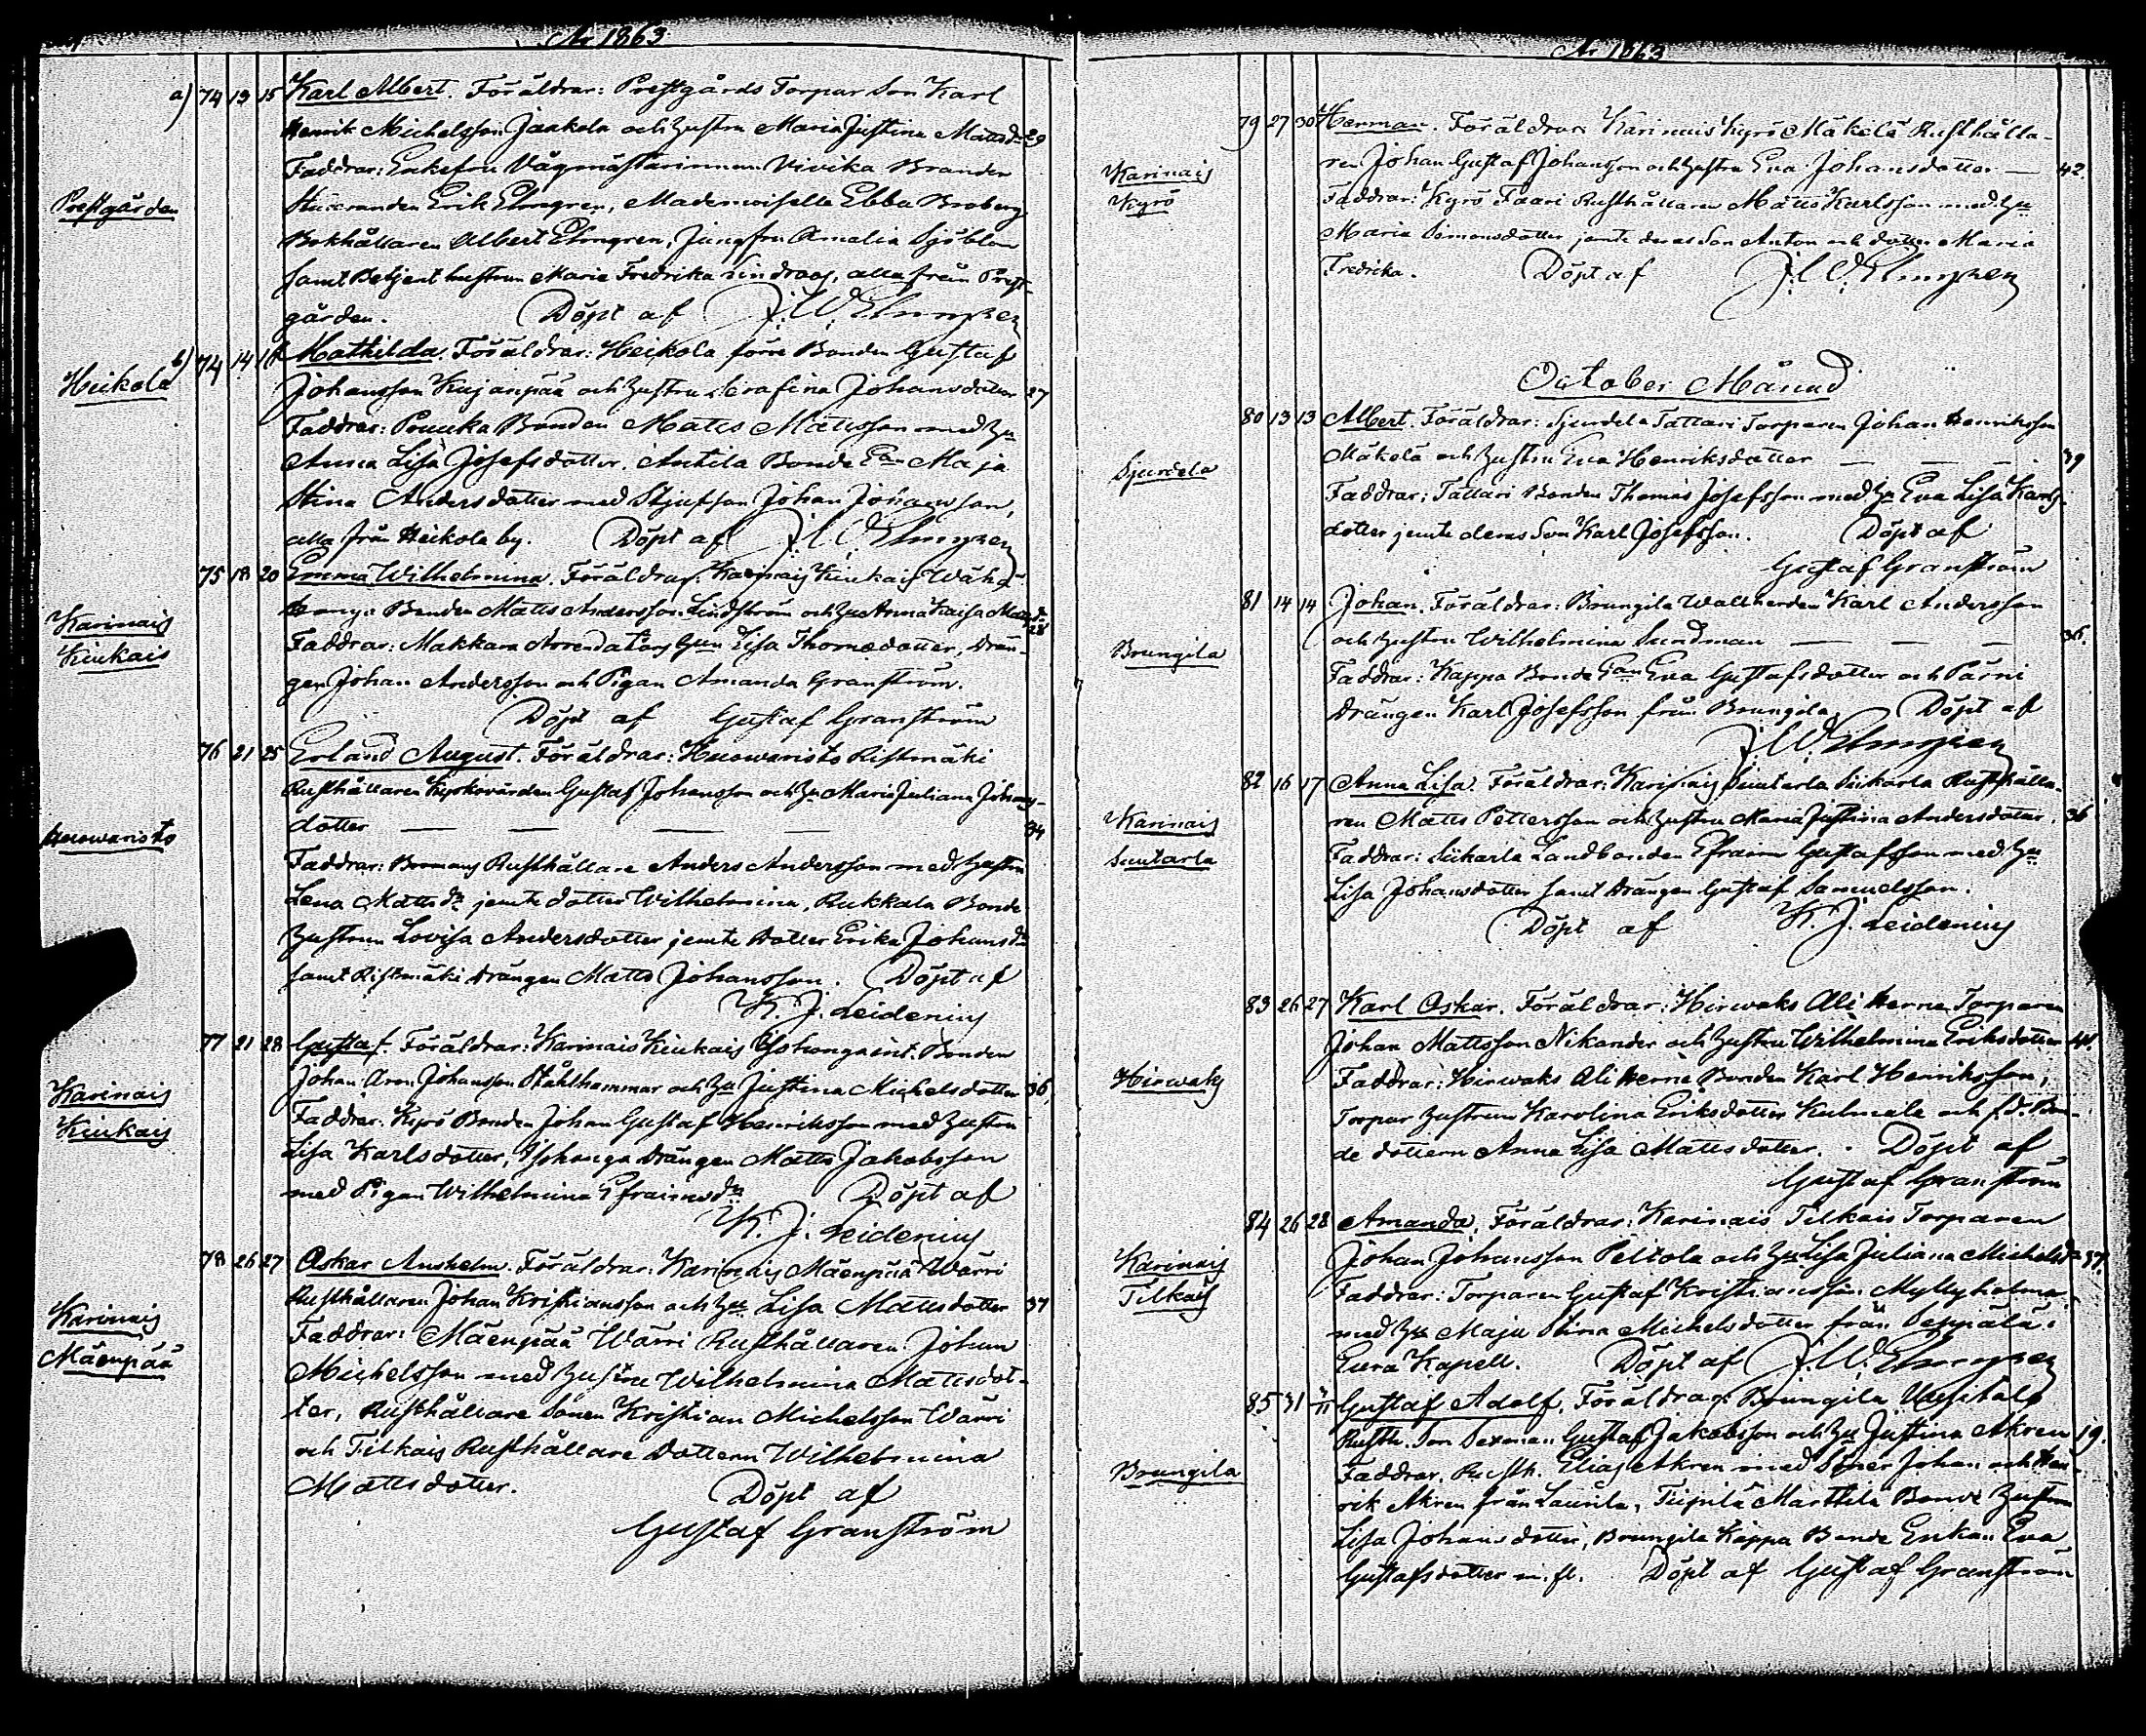 År 1863
a) 74 13 15 Karl Albert. Föräldrar: Prestgårds Torpar Son Karl
Henrik Michelsson Jaakola och hustru Maria Justina Mattsdr 29
Prestgården
Faddrar: Enkefru Vågmästarinnan Vivika Brander
Studeranden Erik Elmgren, Mademoiselle Ebba Broberg
Bokhållaren Albert Elmgren, Jungfru Amalia Sjöblom
samt Betjent hustrun Maria Fredrika Lindroos, alla från Prest-
gården. Döpt af J. W. Elmgren
Heikola
b) 74 14 18 Mathilda. Föräldrar: Heikola förre Bonden Gustaf
Johansson Kujanpää och hustru Serafina Johansdotter 27
Faddrar: Bonden Matts Mattsson med hu
Anna Lisa Josefsdotter. Antila Bonde Ean Maja
Stina Andersdotter med Stjufson Johan Johansson,
alla från Heikola by. Döpt af J. W. Elmgren
Karinais
Kiukais
75 18 20 Emma Wilhelmina. Föräldrar: Karinais Kiukais Wähä
Bonden Matts Andersson Lindström och hu Anna Kaisa Mattsdr 28
Faddrar: Makkara Arrendators Lisa Thomedotter, Drän-
gen Johan Andersson och Pigan Amanda Granström.
Döpt af Gustaf Granström
Huowaristo
76 21 25 Erland August. Föräldrar: Huowaristo Ristmäki
Rusthållaren Kyrkovärden Gustaf Johansson och hu Maria Juliana Johans-
dotter — — — — 34
Faddrar: Bromans Rusthållare Anders Andersson med hustru
Lena Mattsdr jemte dotter Wilhelmina, Rukkala Bonde
hustrun Lovisa Andersdotter jemte dotter Erika Johansdr
samt Ristmäki drängen Matts Johansson. Döpt af
K. J. Leidenius
Karinais
Kiukais
77 21 28 Gustaf. Föräldrar: Karinais Kiukais Isohonga int. Bonden
Johan Aron Johansson Stålhammar och hu Justina Michelsdotter 36
Faddrar: Kyrö Bonden Johan Gustaf Henriksson med hustru
Lisa Karlsdotter, Isohonga drängen Matts Jakobsson
med Pigan Wilhelmina Efraimsdr Döpt af
K. J. Leidenius
Karinais
Mäenpää
78 26 27 Oskar Anshelm. Föräldrar: Karinais Mäenpää Wärri
Rusthållaren Johan Kristiansson och hu Lisa Mattsdotter 37
Faddrar: Mäenpää Wärri Rusthållaren Johan
Michelsson med hustru Wilhelmina Mattsdot-
ter, Rusthållare Sonen Kristian Michelsson Wärri
och Tilkais Rusthållare Dottern Wilhelmina
Mattsdotter. Döpt af
Gustaf Granström
År 1863
Karinais
Kyrö
79 27 30 Herman. Föräldrar: Karinais Kyrö Mäkelä Rusthålla-
ren Johan Gustaf Johansson och hustru Eva Johansdotter — 42
Faddrar: Kyrö Faari Rusthållaren Matts Karlsson med hu
Maria Simonsdotter jemte deras Son Anton och dotter Maria
Fredrika. Döpt af J. W. Elmgren
October Månad
Sjurdela
80 13 13 Albert. Föräldrar: Sjurdela Tattari Torparen Johan Henriksson
Mäkelä och hustru Eva Henriksdotter — — — 39
Faddrar: Tattari Bonden Thomas Josefsson med hu Eva Lisa Karls-
dotter jemte deras Son Karl Josefsson. Döpt af
Gustaf Granström
Brungila
81 14 14 Johan. Föräldrar: Brungila Wallherden Karl Andersson
och hustru Wilhelmina Sundman — — — 36.
Faddrar: Kappa Bonde Ean Eva Gustafsdotter och Pärni
Drängen Karl Josefsson från Brungila. Döpt af
J. W. Elmgren
Karinais
Suutarla
82 16 17 Anna Lisa. Föräldrar: Karinais Suutarla Siikarla Rusthålla-
ren Matts Pettersson och hustru Maria Justina Andersdotter. 36
Faddrar: Siikarla Landbonden Efraim Gustafsson med hu
Lisa Johansdotter samt Drängen Gustaf Samuelsson.
Döpt af K. J. Leidenius
Hirwaks
83 26 27 Karl Oskar. Föräldrar: Hirwaks Ali Herne Torparen
Johan Mattsson Nikander och hustru Wilhelmina Eriksdotter 41.
Faddrar: Hirwaks Ali Herne Bonden Karl Henriksson,
Torpar hustrun Karolina Eriksdotter Kulmala och f.d. Bon-
de dottern Anna Lisa Mattsdotter. Döpt af
Gustaf Granström
Karinais
Tilkais
84 26 28 Amanda. Föräldrar: Karinais Tilkais Torparen
Johan Johansson Peltola och hu Lisa Juliana Michelsdr 37.
Faddrar: Torparen Gustaf Kristiansson Myllyholma
med hu Maja Stina Michelsdotter från Seppälä i
Eura Kapell. Döpt af J. W. Elmgren
Brungila
85 31 1/11 Gustaf Adolf. Föräldrar: Brungila Uusitalo
Rusth. Son Sexman Gustaf Jakobsson och hu Justina Akren 19.
Faddrar: Rusth. Elias Akren med Söner Johan och Hen-
rik Akren från Laurila, Tiipilä Marttila Bonde hustrun
Lisa Johansdotter, Brungila Kappa Bonde Enkan Eva
Gustafsdotter m. fl. Döpt af Gustaf Granström